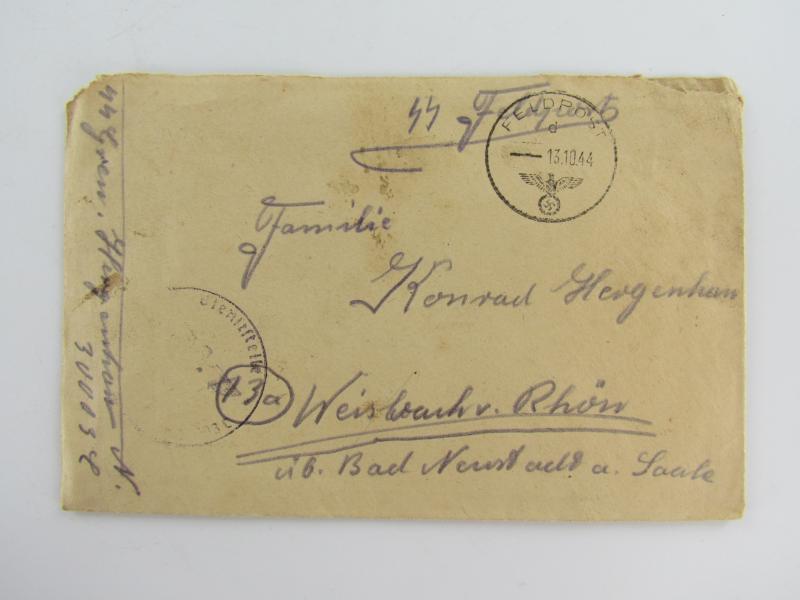 SS Feldpost
FELDPOST
d
13.10.44
Familie
Konrad Hergenhan
13a
Weisbach v. Rhön
üb. Bad Neustadt a. Saale
SS Gren. Hergenhan N.
Dienststelle